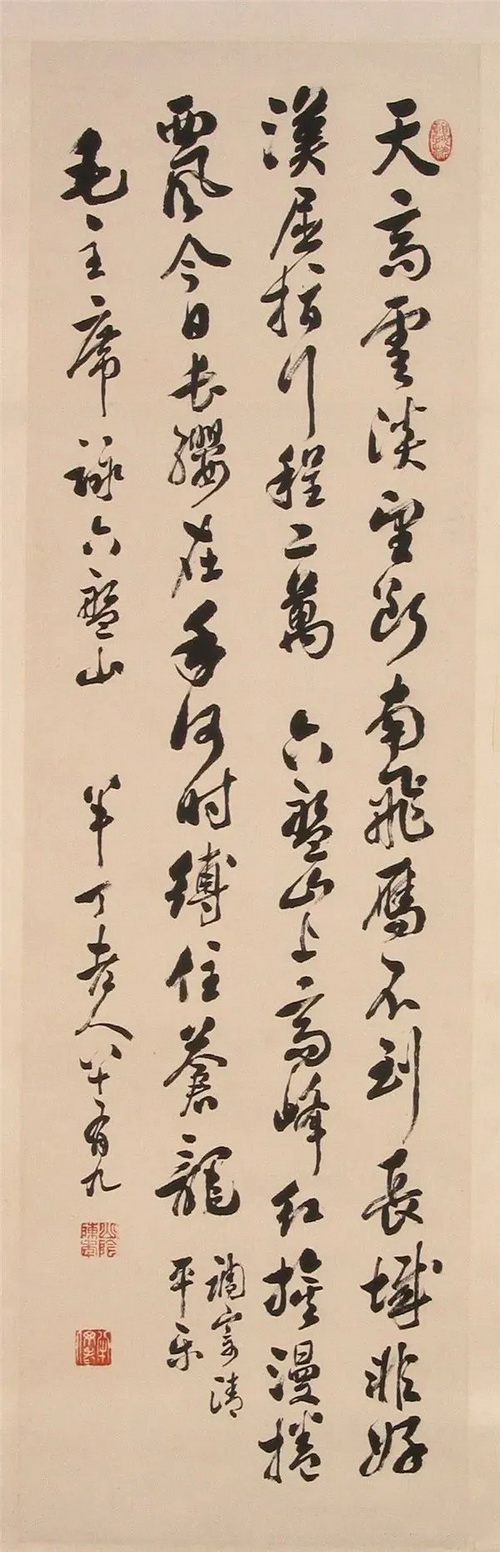 天高雲淡望斷南飛雁不到長城非好
漢屈指行程二萬 六盤山上高峰紅旗漫捲
西风今日長纓在手何时縛住蒼龍
調寄清
平樂
毛主席詠六盤山 半丁老人八十有九
山陰陳年